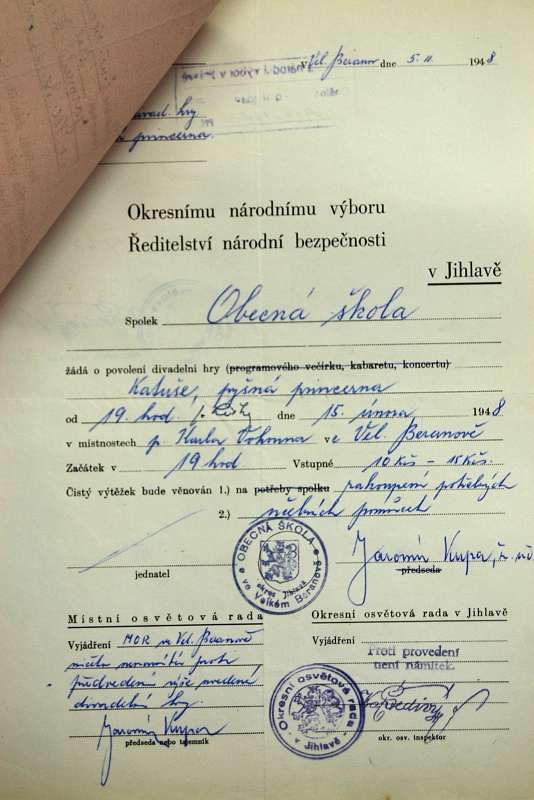 V Vel. Beranov dne 5. II. 1948
hry
princezna.
Okresnímu národnímu výboru
Ředitelství národní bezpečnosti
v Jihlavě
Spolek Obecná škola
žádá o povolení divadelní hry (programového večírku, kabaretu, koncertu)
Katuše, pyšná princezna
od 19. hod. dne 15. února 1948
v místnostech p. Karla ve Vel. Beranově
Začátek v 19 hod. Vstupné 10 Kčs – 15 Kčs.
Čistý výtěžek bude věnován 1.) na potřeby spolku zakoupení potřebných
2.) učebních pomůcek
OBECNÁ ŠKOLA
ve Velkém Beranově
okres Jihlava
Jaromír Krupa,
jednatel předseda
Místní osvětová rada Okresní osvětová rada v Jihlavě
Vyjádření MOR ve Vel. Beranově Vyjádření
Proti provedení
není námitek.
předvedení výše uvedené
divadelní hry.
Jaromír Krupa
předseda nebo tajemník
Okresní osvětová rada
v Jihlavě
okr. osv. inspektor